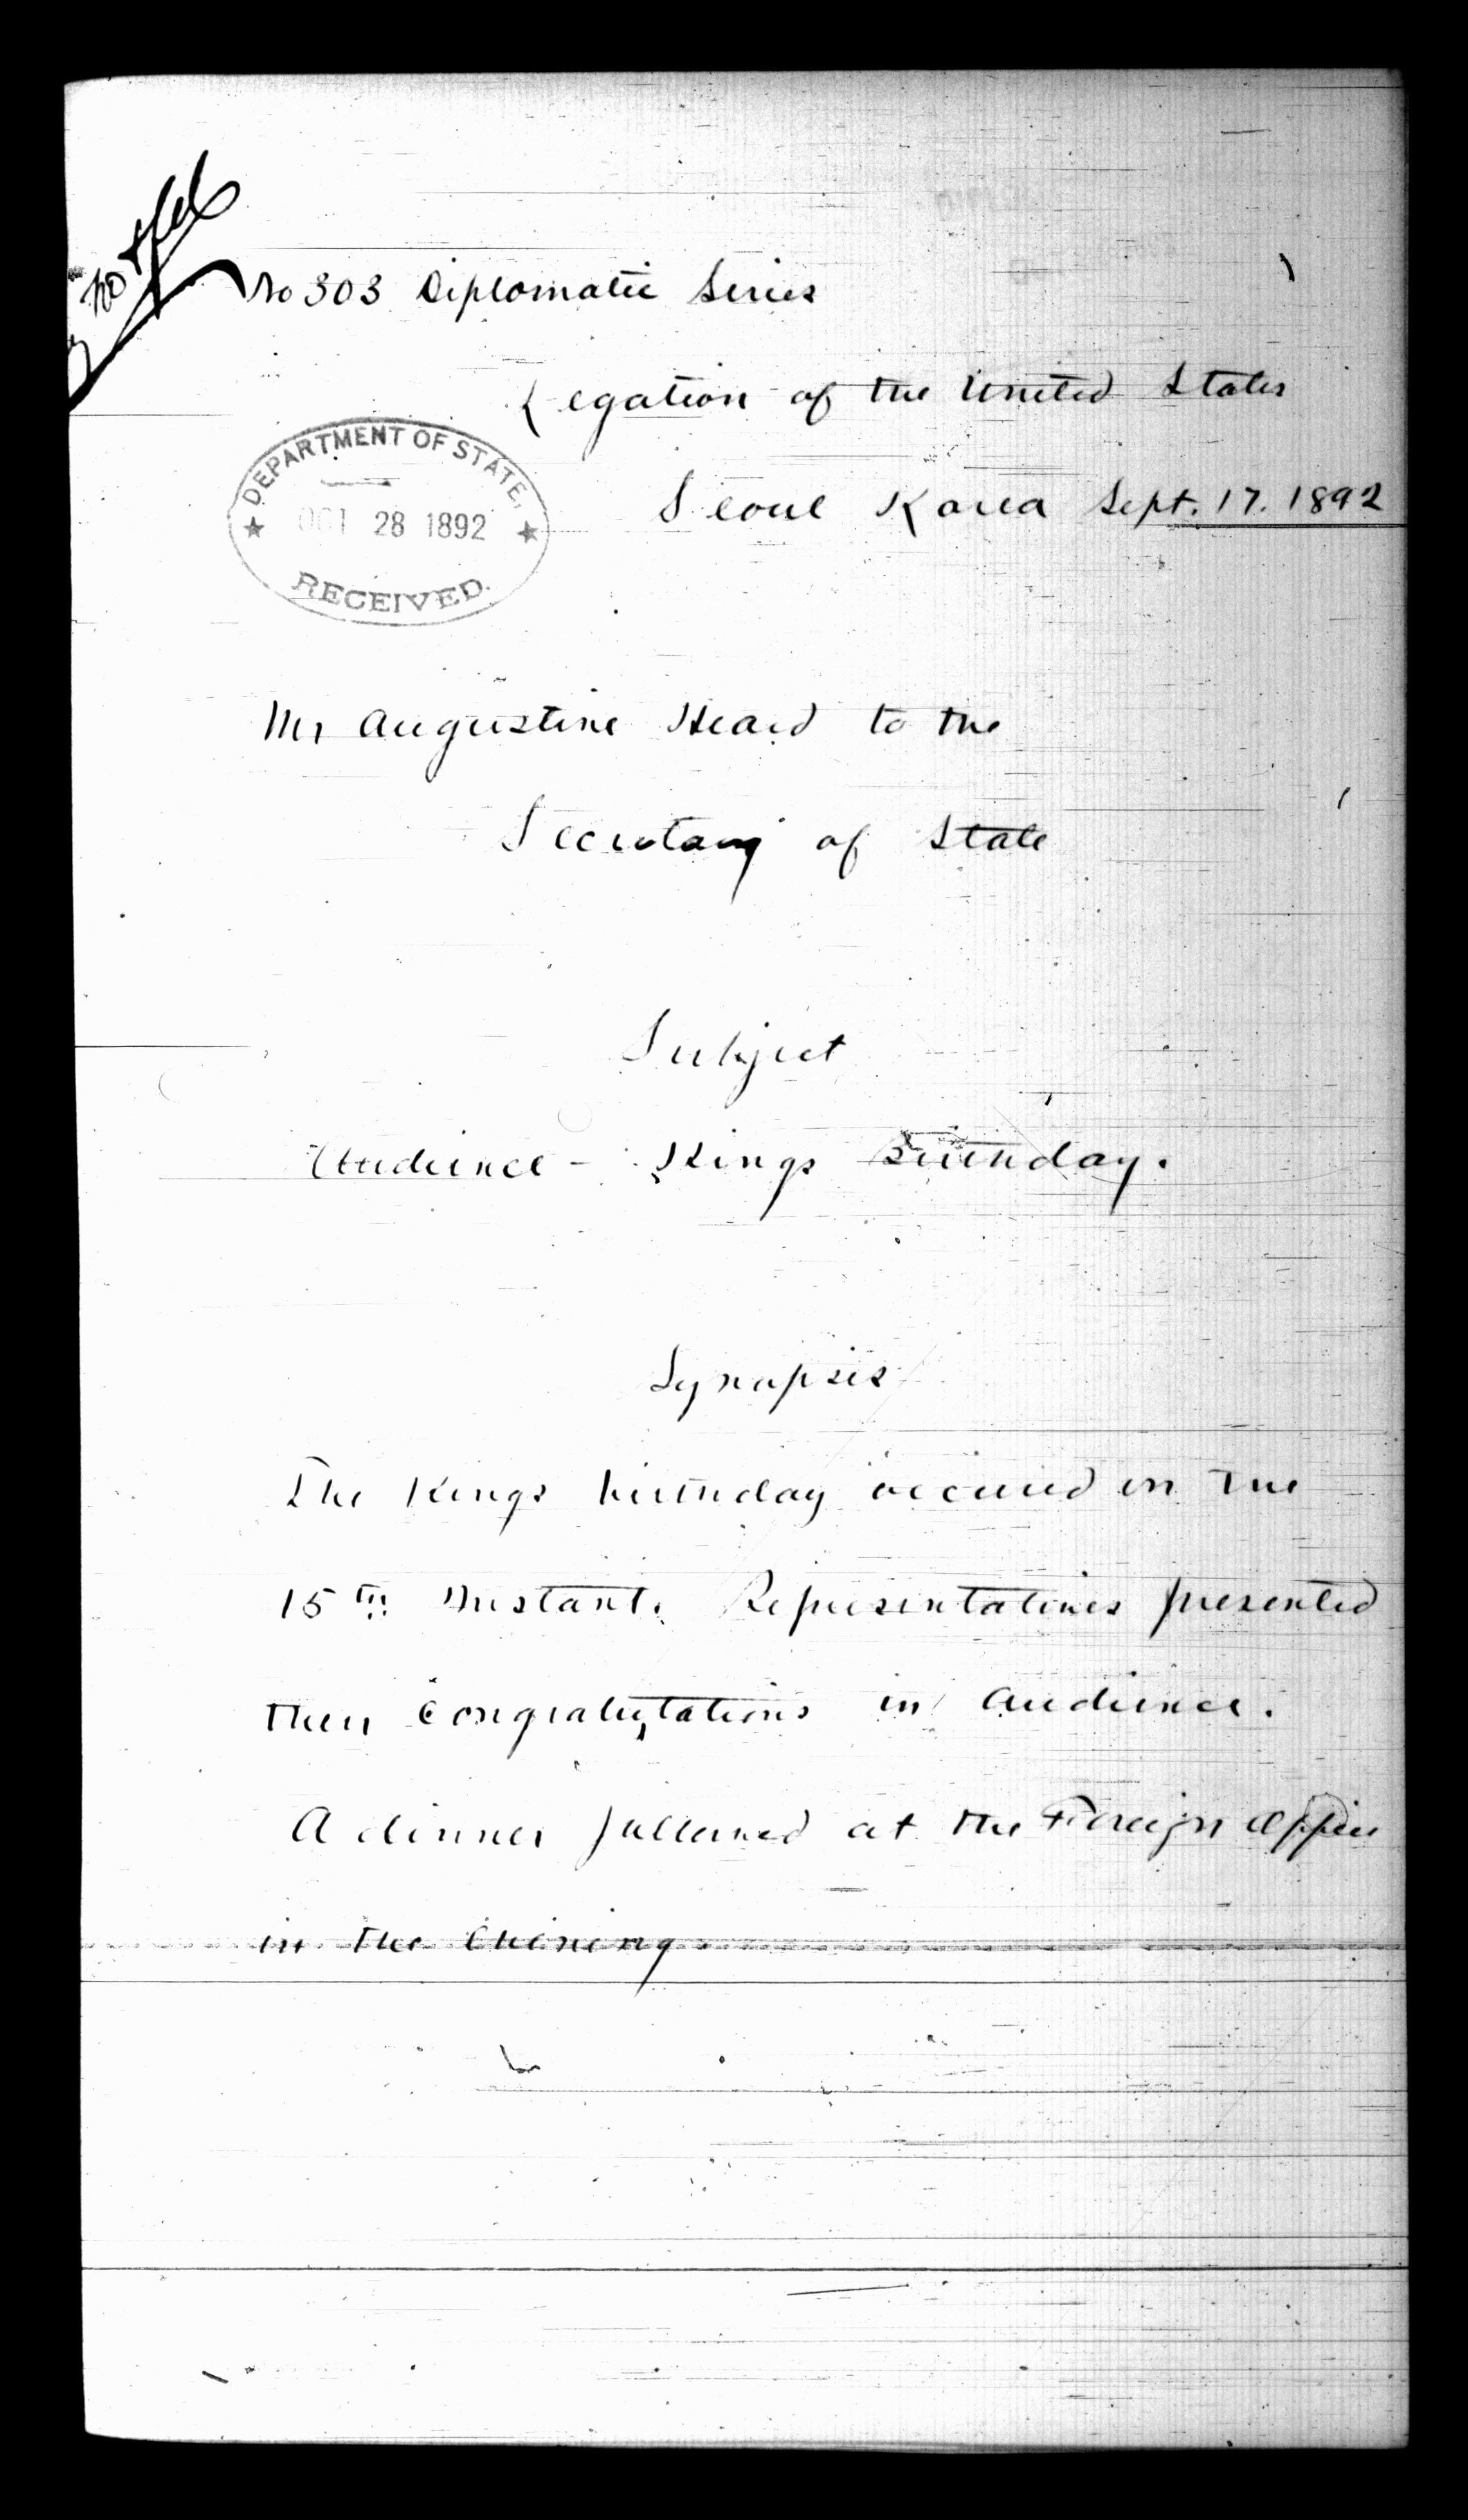 No 303 Diplomatic Series
Legation of the United States
DEPARTMENT OF STATE,
OCT 28 1892
RECEIVED.
Seoul Korea Sept. 17. 1892
Mr Augustine Heard to the
Secretary of State
Subject
Audience - Kings Birthday.
Synopsis
The Kings birthday occured on the
15th Instant. Representatives presented
their Congratulations in Audience.
A dinner followed at the Foreign Office
in the Evening